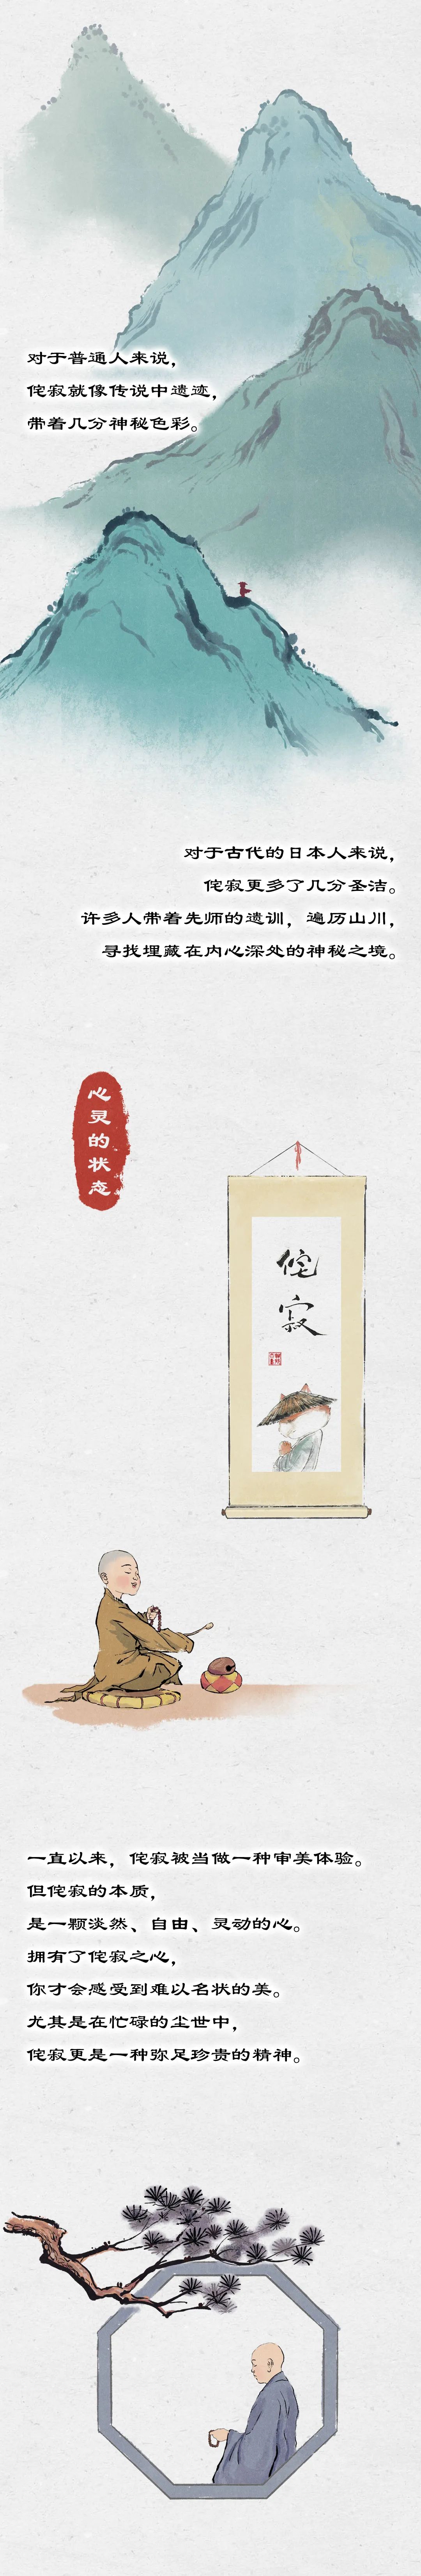 对于普通人来说，
侘寂就像传说中遗迹，
带着几分神秘色彩。
对于古代的日本人来说，
侘寂更多了几分圣洁。
许多人带着先师的遗训，遍历山川，
寻找埋藏在内心深处的神秘之境。
心灵的状态
侘
寂
一直以来，侘寂被当做一种审美体验。
但侘寂的本质，
是一颗淡然、自由、灵动的心。
拥有了侘寂之心，
你才会感受到难以名状的美。
尤其是在忙碌的尘世中，
侘寂更是一种弥足珍贵的精神。